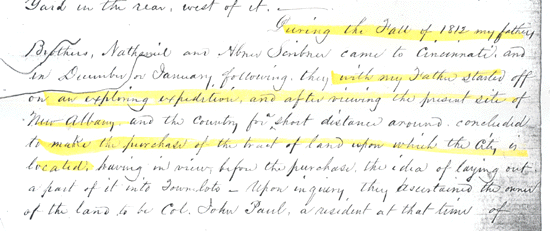 Yard in the rear, west of it. —
During the Fall of 1812 my father's
Brothers, Nathaniel and Abner Scribner came to Cincinnati, and
in December or January following, they with my Father started off
on an exploring expedition, and after viewing the present site of
New Albany, and the Country for short distance around, concluded
to make the purchase of the tract of land upon which the City is
located, having in view, before the purchase, the idea of laying out
a part of it into Town lots — Upon inquiry, they ascertained the owner
of the land to be Col. John Paul, a resident at that time of